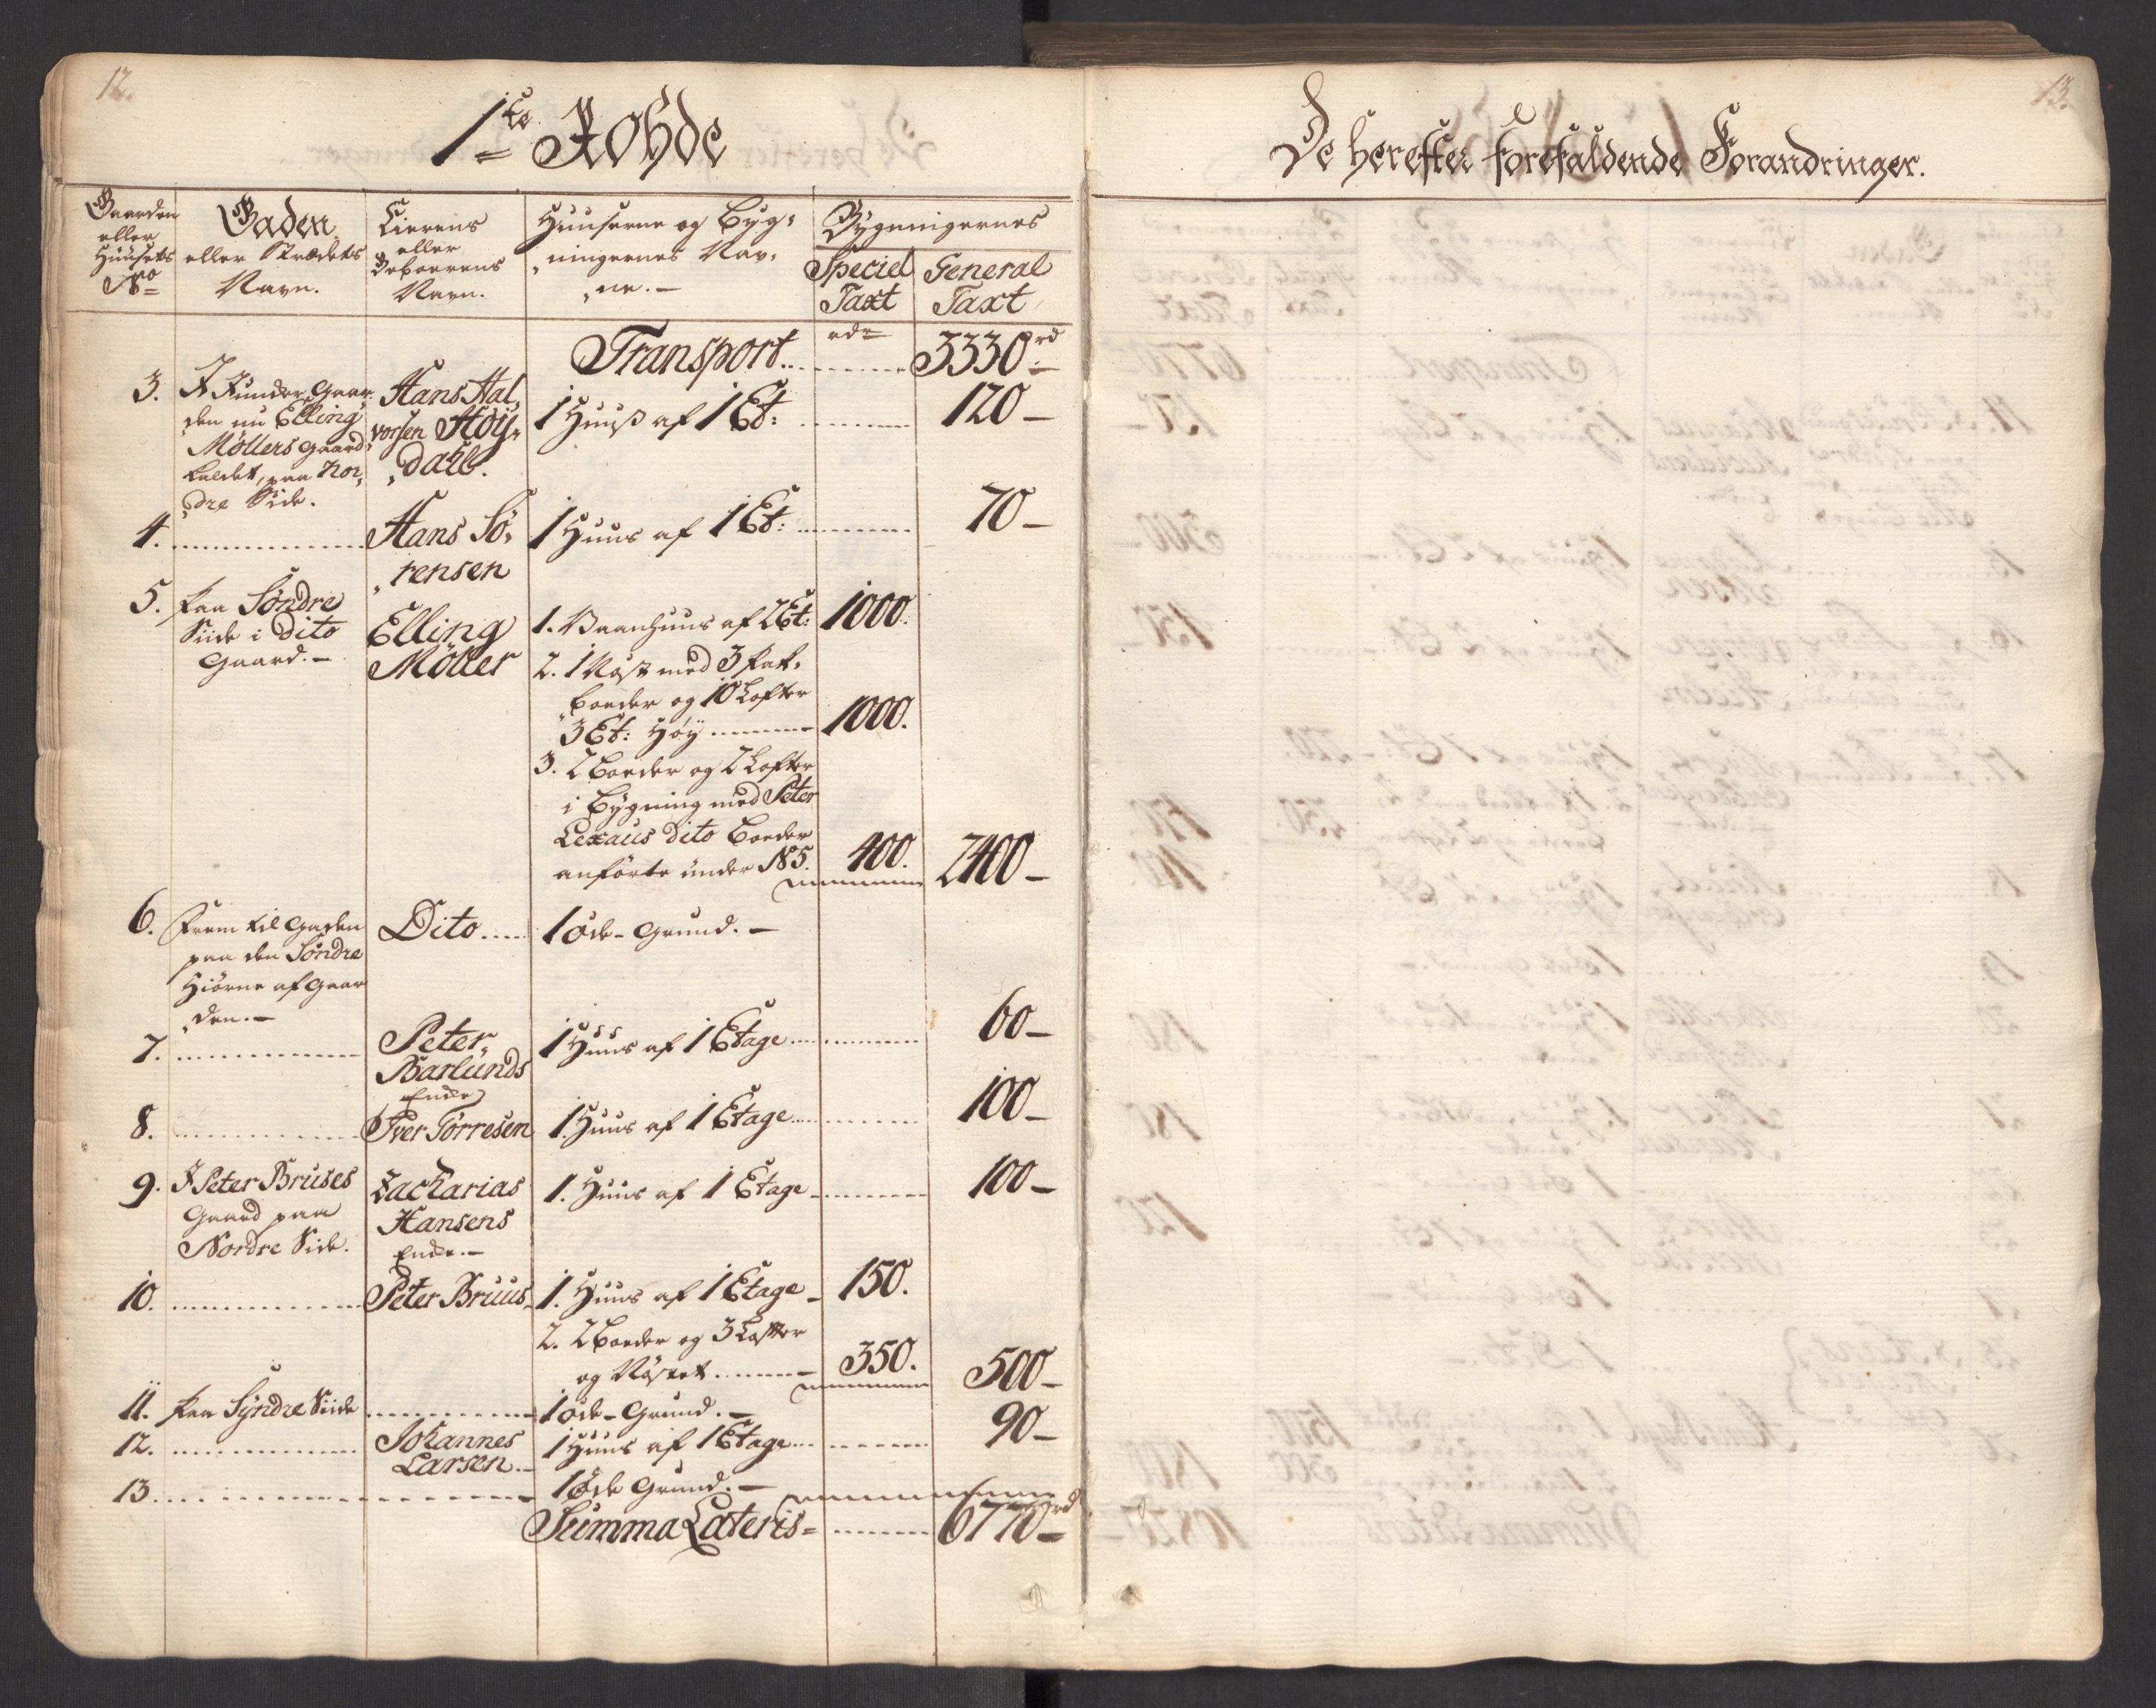 12.
1ste Rohde
Gaarden eller Huusets No
Gaden eller Strædets Navn.
Eierens eller Beboerens Navn.
Huuserne og Byg„ningernes Nav„ne.
Bygningernes
Speciel Taxt
General Taxt
Transport rdr 3330rd
3. I Kunder Gaar„den nu Elling Møllers gaard kaldet, paa Nor„dre Side. Hans Hal„vorsen Høy„dahl. 1 Huus af 1 Et: 120
4. Hans Sö„rensen 1 Huus af 1 Et: 70
5. Paa Söndre Siide i dito Gaard. Elling Möller 1. Vaanhuus af 2 Et: 1000.
2. 1 Nøst med 3 Pak„
boeder og 10 Lofter
3 Et: Høy 1000.
3. 2 Boeder og 2 Lofter
i Bygning med Peter
Lexaus dito Boeder
anførte under N 5. 400. 2400
6. Frem til Gaden paa den Söndre Hiörne af Gaar„den. Dito 1 öde Grund.
7. Peter Barlunds Enke 1 Huus af 1 Etage 60
8. Iver Torresen 1 Huus af 1 Etage 100
9. I Peter Bruses Gaard paa Nordre Side. Zacharias Hansens Enke. 1. Huus af 1 Etage 100
10. Peter Bruus 1. Huus af 1 Etage 150.
2. 2 Boeder og 3 Lofter
og Nøstet 350. 500
11. Paa Syndre Siide 1 öde Grund.
12. Johannes Larsen. 1 Huus af 1 Etage 90
13. 1 öde Grund.
Summa Lateris 6770rd
13.
De herefter forefaldende Forandringer.